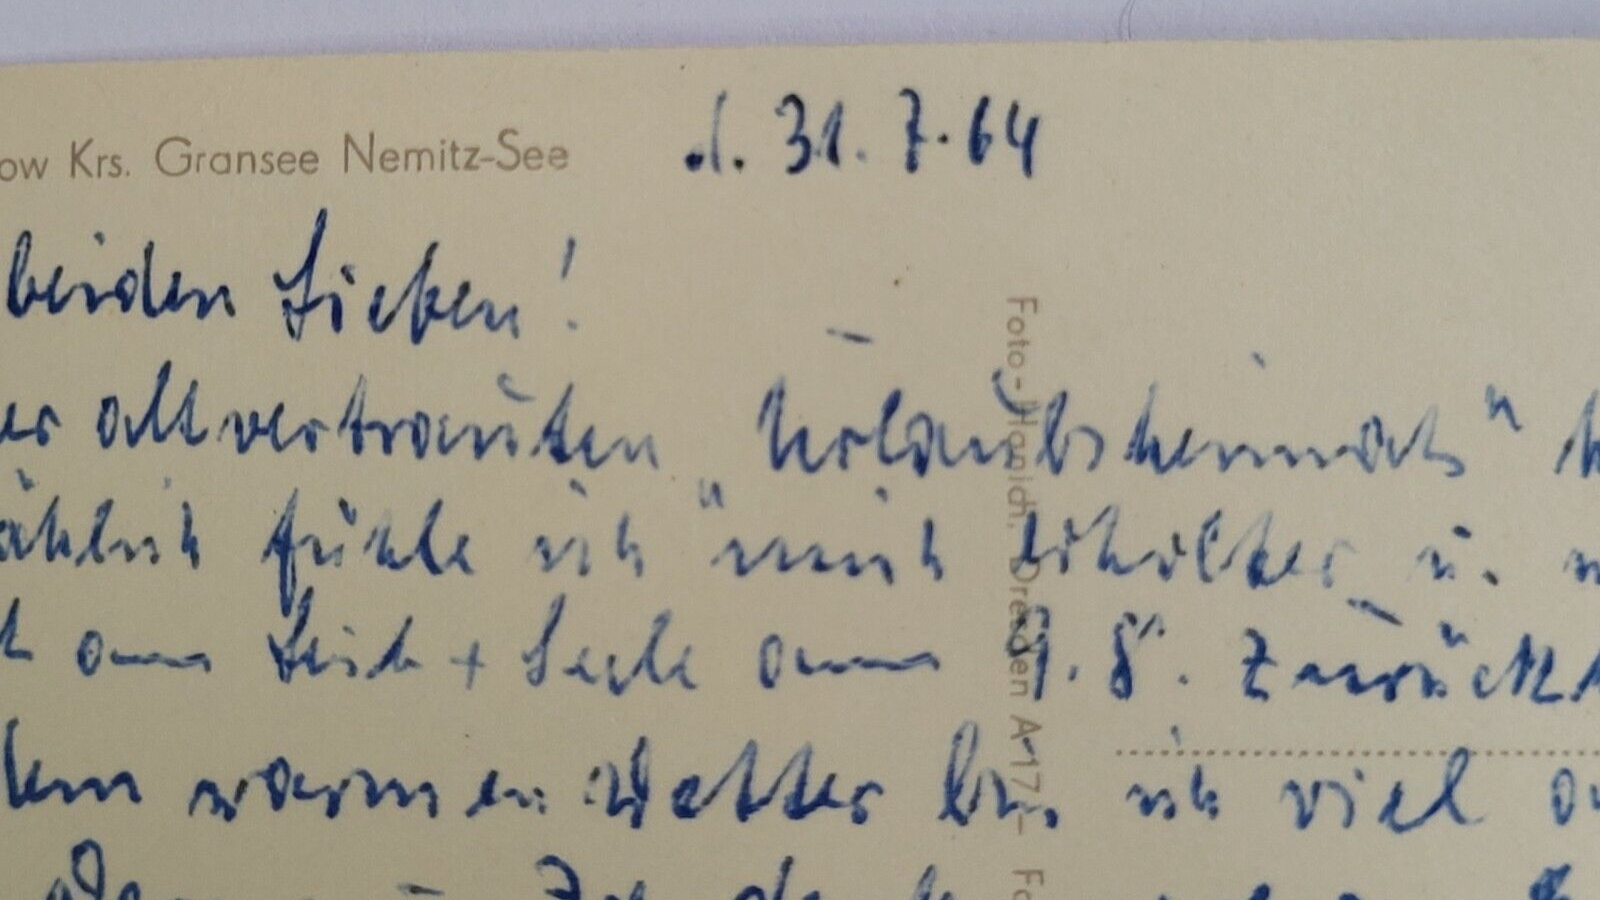 ow Krs. Gransee Nemitz-See
d. 31. 7. 64
beiden Lieben!
er altvertrauten "Urlaubsheimat"
ählich fühle ich mich erholter u.
am Leib + Seele am 9. 8. zurück
dem warmen Wetter bin ich viel
Foto-Hanich, Dresden A 17 – Fo